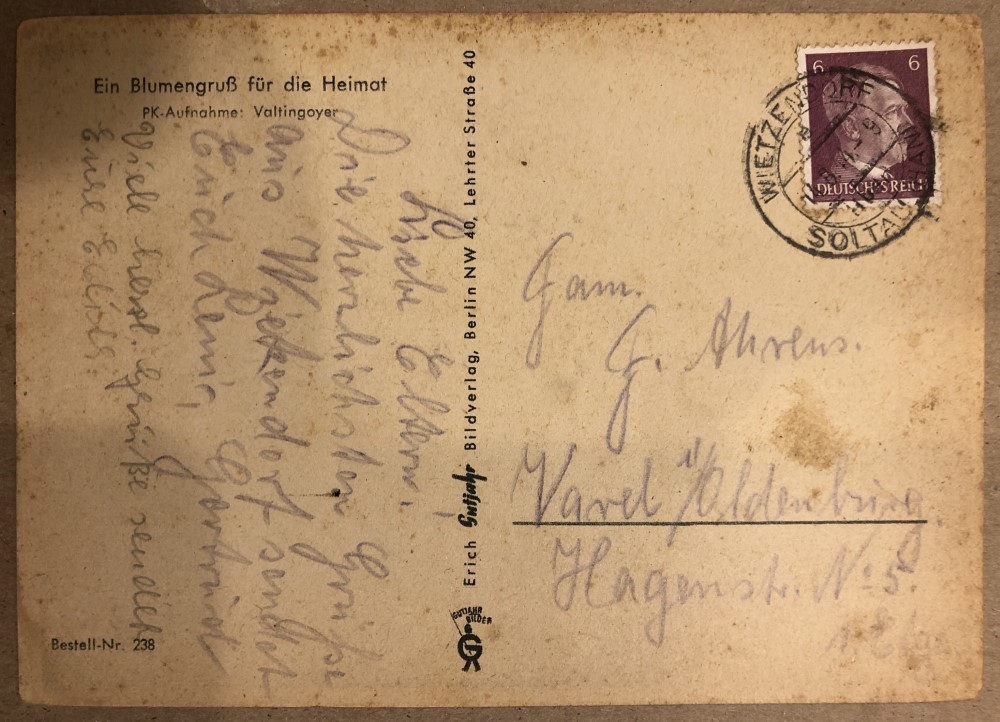 Ein Blumengruß für die Heimat
PK-Aufnahme: Valtingoyer
Liebe Eltern,
Die herzlichsten Grüße
aus Wietzendorf sendet
Euch Lenni, Gertrud
Viele herzl. Grüße sendet
Eure
Bestell-Nr. 238
Erich Gutjahr Bildverlag, Berlin NW 40, Lehrter Straße 40
GUTJAHR
BILDER
6 6
DEUTSCHES REICH
WIETZENDORF
SOLTAU
Fam.
G. Ahrens.
Varel i/Oldenburg.
Hagenstr. No 5.